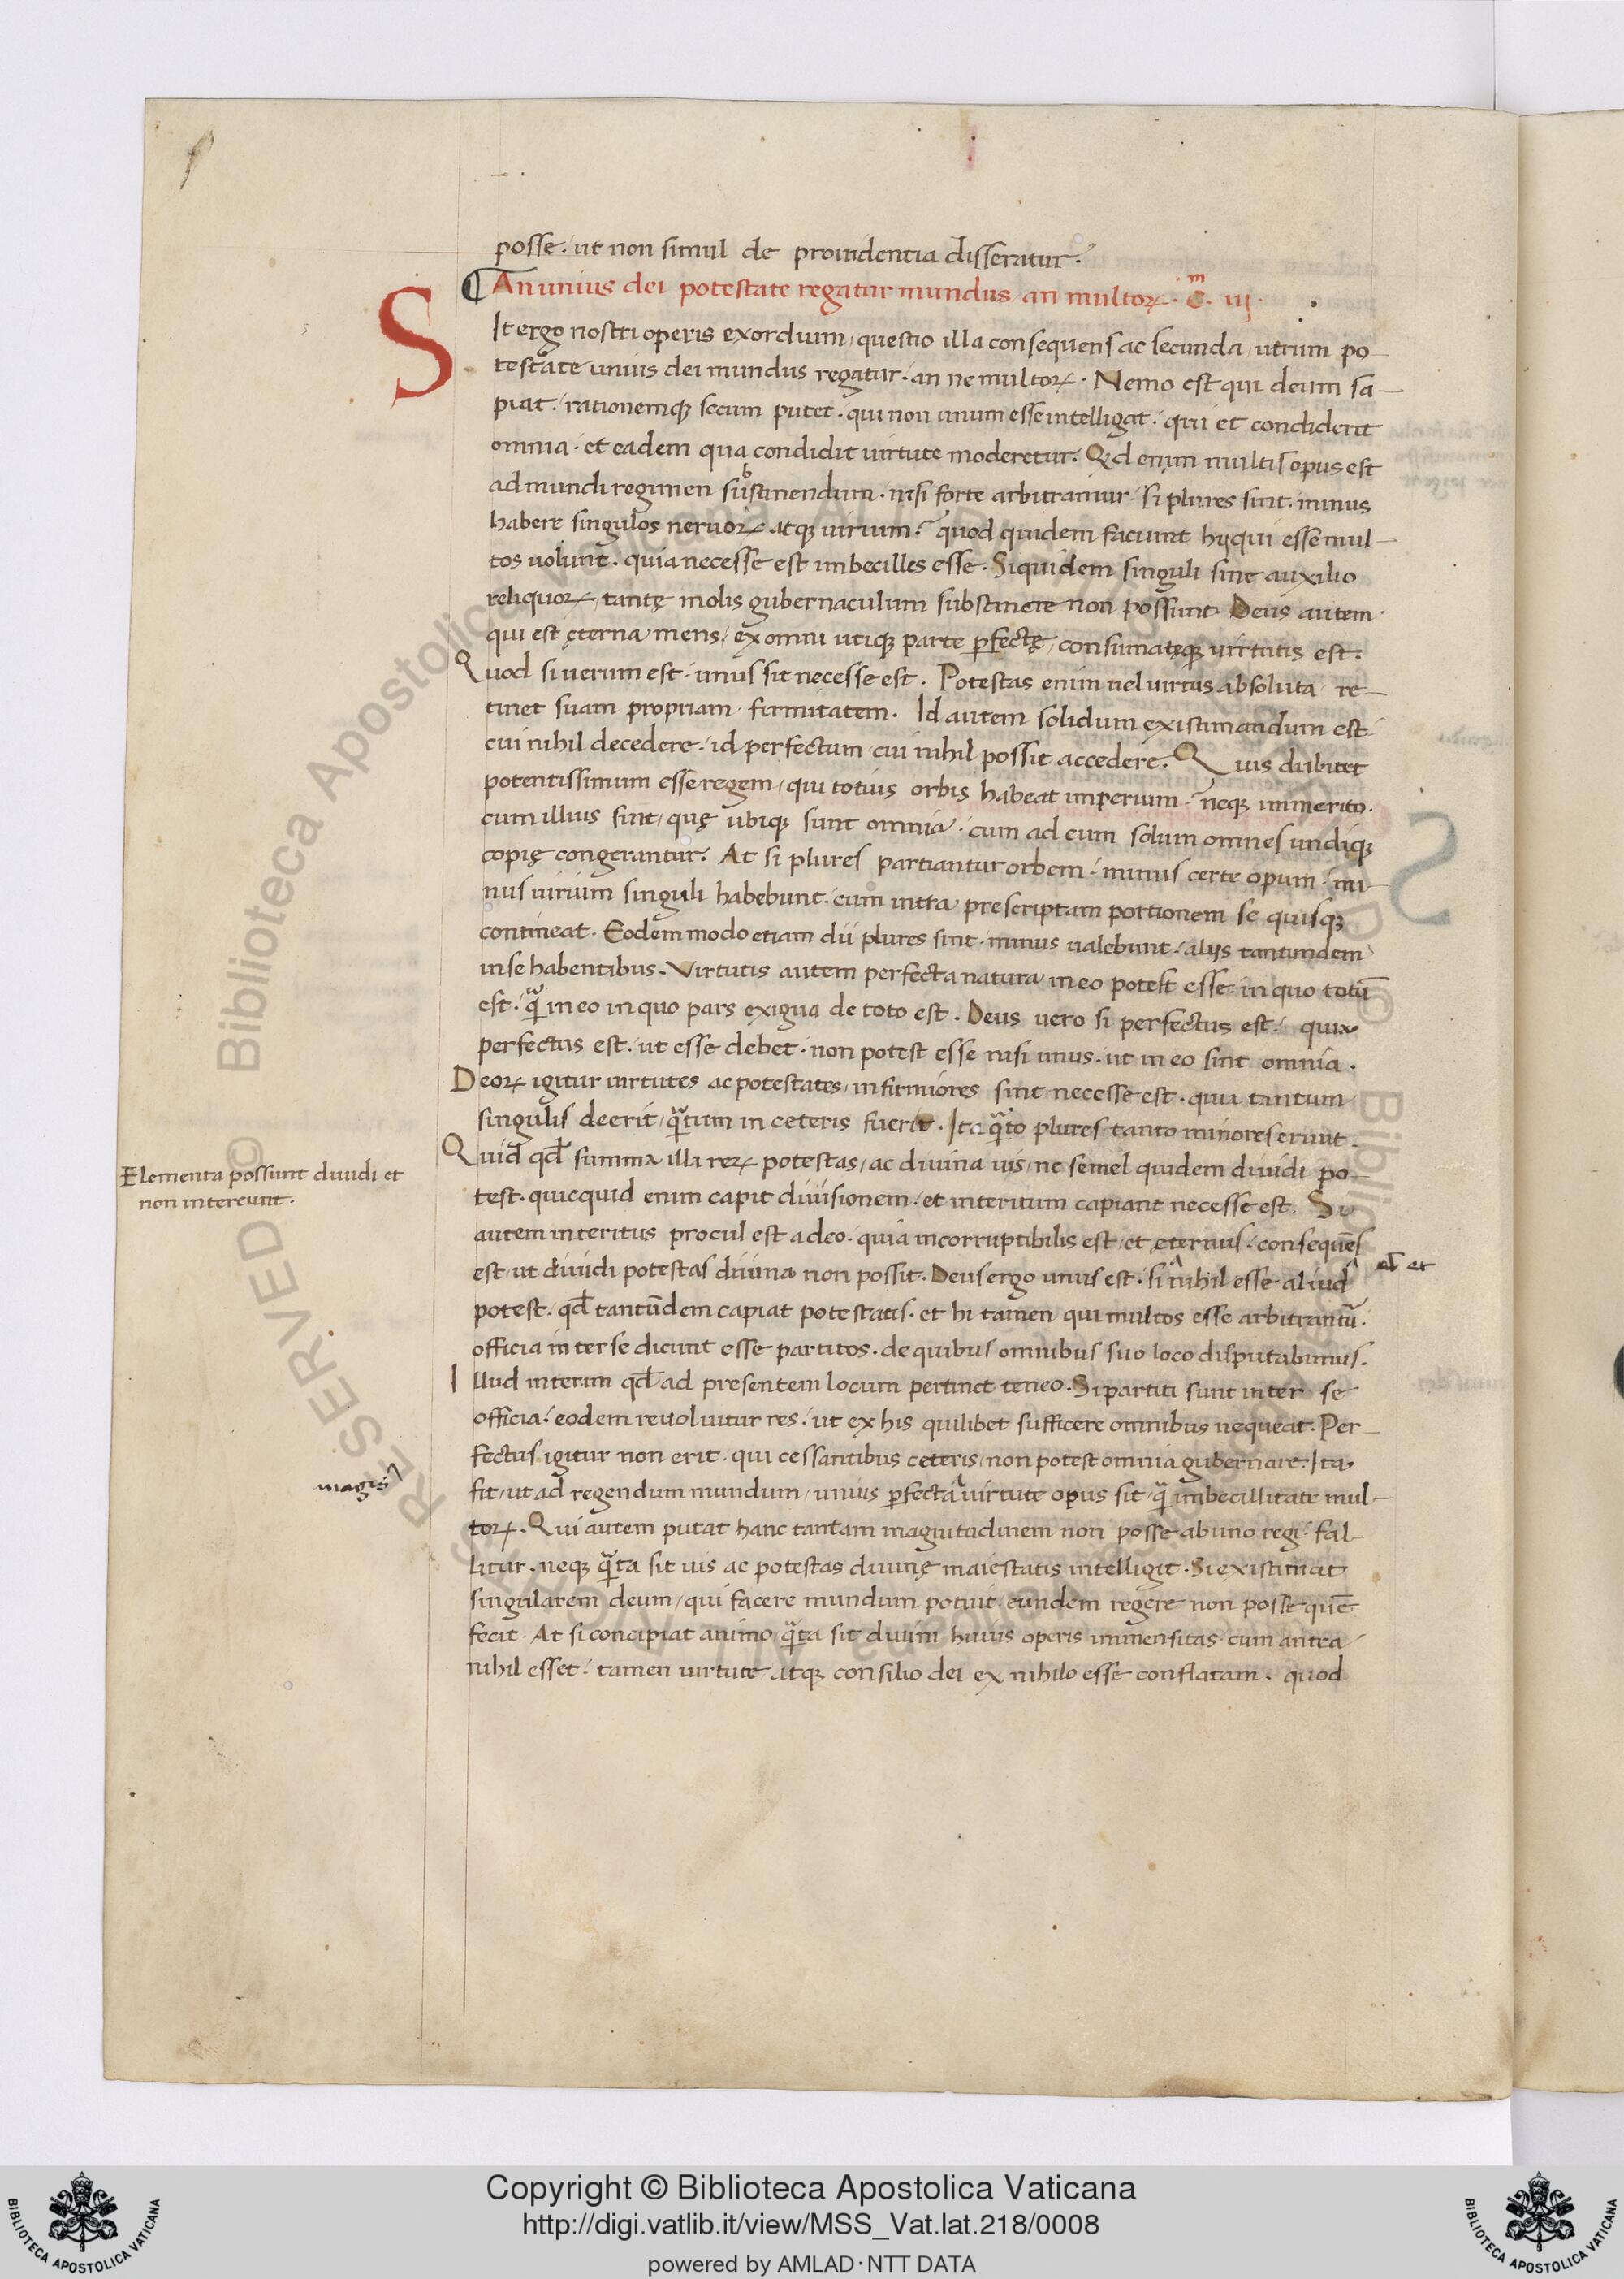 posse. ut non simul de prouidentia disseratur.
An unius dei potestate regatur mundus an multoꝝ. C.ᵐ iij.
SIt ergo nostri operis exordium, questio illa consequens ac secunda, utrum po-
testate unius dei mundus regatur. an ne multoꝝ. Nemo est qui deum sa-
piat. rationemqꝫ secum putet. qui non unum esse intelligat. qui et condiderit
omnia. et eadem qua condidit uirtute moderetur. Qd enim multis opus est
ad mundi regimen subͨstinendum. nisi forte arbitramur. si plures sint. minus
habere singulos neruoꝝ atqꝫ uirium? quod quidem faciunt hij qui esse mul-
tos uolunt. quia necesse est imbecilles esse. Siquidem singuli sine auxilio
reliquoꝝ, tantę molis gubernaculum substinere non possunt. Deus autem.
qui est ęterna mens, ex omni utiqꝫ parte ꝑfectę, consumatęqꝫ uirtutis est.
Quod si uerum est. unus sit necesse est. Potestas enim uel uirtus absoluta re-
tinet suam propriam firmitatem. Id autem solidum existimandum est.
cui nihil decedere. id perfectum cui nihil possit accedere. Quis dubitet
potentissimum esse regem, qui totius orbis habeat imperium? neqꝫ immerito.
cum illius sint, quę ubiqꝫ sunt omnia. cum ad eum solum omnes undiqꝫ
copię congerantur. At si plures partiantur orbem. minus certe opum. mi-
nus uirium singuli habebunt. cum intra prescriptam portionem se quisqꝫ
contineat. Eodem modo etiam dii plures sint. minus ualebunt. alijs tantundem
in se habentibus. Virtutis autem perfecta natura in eo potest esse in quo totū
est. q̃ in eo in quo pars exigua de toto est. Deus uero si perfectus est. quia
perfectus est. ut esse debet. non potest esse nisi unus. ut in eo sint omnia.
Deoꝝ igitur uirtutes ac potestates, infirmiores sint necesse est. quia tantum
singulis deerit, q̃tum in ceteris fuerit. Ita q̃to plures, tanto minores erunt.
Quid qđ summa illa reꝝ potestas, ac diuina uis, ne semel quidem diuidi po-
test. quicquid enim capit diuisionem. et interitum capiant necesse est. Si
autem interitus procul est a deo. quia incorruptibilis est, et ęternus. consequēs
est, ut diuidi potestas diuina non possit. Deus ergo unus est. si nihil esse aliud
potest. qđ tantūdem capiat potestatis. et hi tamen qui multos esse arbitrantū.
officia inter se dicunt esse partitos. de quibus omnibus suo loco disputabimus.
Illud interim qđ ad presentem locum pertinet teneo. Si partiti sunt inter se
officia. eodem reuoluitur res. ut ex his quilibet sufficere omnibus nequeat. Per-
fectus igitur non erit. qui cessantibus ceteris, non potest omnia gubernare. Ita
fit, ut ad regendum mundum, unius ꝑfecta uirtute opus sit, q̃ imbecillitate mul-
toꝝ. Qui autem putat hanc tantam magnitudinem non posse ab uno regi. fal-
litur. neqꝫ q̃ta sit uis ac potestas diuinę maiestatis intelligit. Si existimat
singularem deum, qui facere mundum potuit. eundem regere non posse quē
fecit. At si concipiat animo, q̃ta sit diuini huius operis immensitas. cum antea
nihil esset. tamen uirtute atqꝫ consilio dei ex nihilo esse conflatam. quod
Elementa possunt diuidi et
non intereunt.
et
magis
RESERVED © Biblioteca Apostolica Vaticana
Copyright © Biblioteca Apostolica Vaticana
http://digi.vatlib.it/view/MSS_Vat.lat.218/0008
powered by AMLAD·NTT DATA
BIBLIOTECA APOSTOLICA VATICANA
BIBLIOTECA APOSTOLICA VATICANA